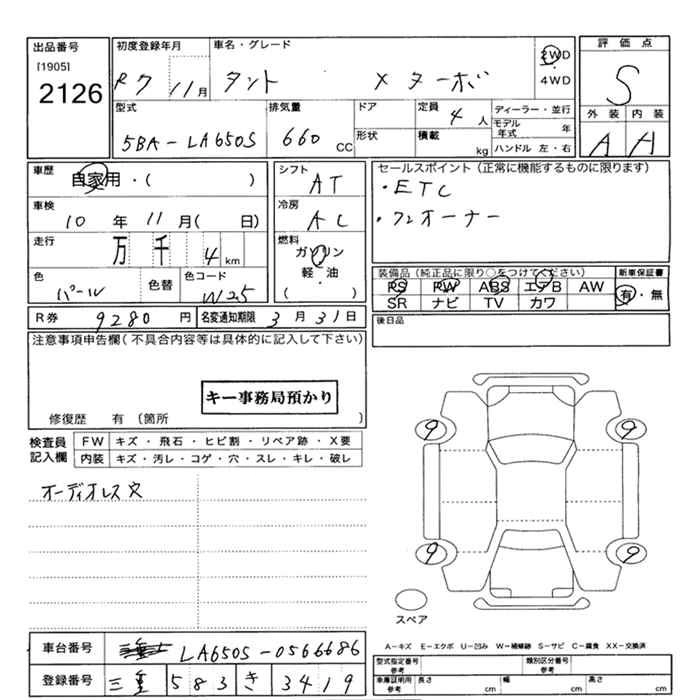 出品番号 初度登録年月 車名・グレード 評価点
[1905] 2126 R7 11月 タント Xターボ 2WD・4WD S
型式 排気量 ドア 定員 4人 ディーラー・並行 外装 内装
5BA-LA650S 660 CC 形状 積載 kg モデル年式 年 A A
ハンドル 左・右
車歴 自家用・( ) シフト AT セールスポイント(正常に機能するものに限ります)
・ETC
車検 10年11月( 日) 冷房 AC ・ワンオーナー
走行 万 千 4km 燃料 ガソリン 軽・油 ( )
色 パール 色替 色コード W25 装備品(純正品に限り○をつけてください) 新車保証書
PS PW ABS エアB AW 有・無
SR ナビ TV カワ
R券 9280円 名変通知期限 3月31日 後日品
注意事項申告欄(不具合内容等は具体的に記入して下さい)
キー事務局預かり
修復歴 有 (箇所 )
検査員記入欄 FW キズ・飛石・ヒビ割・リペア跡・X要
内装 キズ・汚レ・コゲ・穴・スレ・キレ・破レ
9 9
オーディオレス
9 9
スペア
車台番号 LA650S-0566686 A-キズ E-エクボ U-凹み W-補修跡 S-サビ C-腐食 XX-交換済
型式指定番号 参考 類別区分番号 参考
登録番号 三重 583 き 3419 車庫証明用 参考 長さ cm 幅 cm 高さ cm